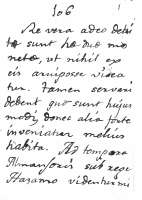 106
Re vera adeo debi
tæ sunt hæ duæ mo
netæ, ut nihil ex
eis arripere videa
tur. Tamen servari
debent quo sunt hujus
modi, donec alia forte
inveniatur melius
habita. Ad tempora
Almansoris sub rege
Haramo videntur mi